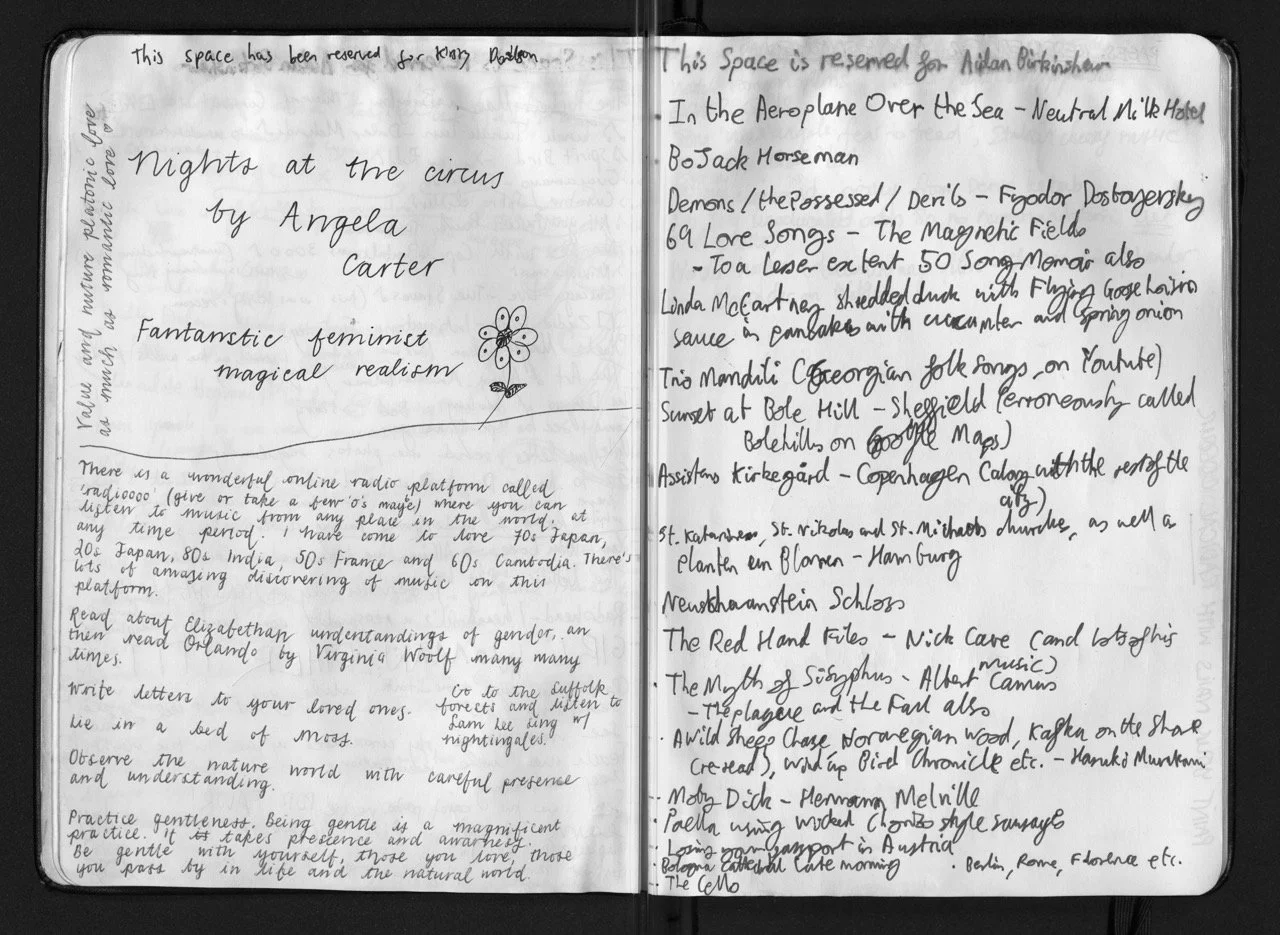 This space has been reserved for Kitty Dodson
Value and nuture platonic love
as much as romanic love
Nights at the circus
by Angela
Carter
Fantanstic feminist
magical realism
There is a wonderful online radio platform called
'radioooo' (give or take a few 'o's maybe) where you can
listen to music from any place in the world, at
any time period. I have come to love 70s Japan,
20s Japan, 80s India, 50s France and 60s Cambodia. There's
lots of amazing discovering of music on this
platform.
Read about Elizabethan understandings of gender, an
then read Orlando by Virginia Woolf many many
times.
Write letters to your loved ones.
Lie in a bed of moss.
Go to the Suffolk
forects and listen to
Sam Lee sing w/
nightingales.
Observe the nature world with careful presence
and understanding.
Practice gentleness. Being gentle is a magnificent
practice. It takes presence and awarness.
Be gentle with yourself, those you love, those
you pass by in life and the natural world.
This Space is reserved for Aidan Birkinshaw
In the Aeroplane Over the Sea - Neutral Milk Hotel
BoJack Horseman
Demons/the Possessed/Devils - Fyodor Dostoyevsky
69 Love Songs - The Magnetic Fields
- To a Lesser extent 50 Song Memoir also
Linda McCartney shredded duck with Flying Goose hoisin
sauce in pancakes with cucumber and spring onion
Trio Mandili (Georgian folk songs on Youtube)
Sunset at Bole Hill - Sheffield (erroneously called
Bolehills on Google Maps)
Assistens Kirkegård - Copenhagen (along with the rest of the
city)
St. Katarinen, St. Nikolas and St. Michaels churches, as well as
Planten un Blomen - Hamburg
Neuschwanstein Schloss
The Red Hand Files - Nick Cave (and lots of his
music)
· The Myth of Sisyphus - Albert Camus
- The plague and the Fall also
· A Wild Sheep Chase, Norwegian Wood, Kafka on the Shore
(re-read), Wind up Bird Chronicle etc. - Haruki Murakami
· Moby Dick - Hermann Melville
· Paella using wicked Chorizo style sausages
· Losing your passport in Austria
· Bologna cathedral late morning
· Berlin, Rome, Florence etc.
· The Cello